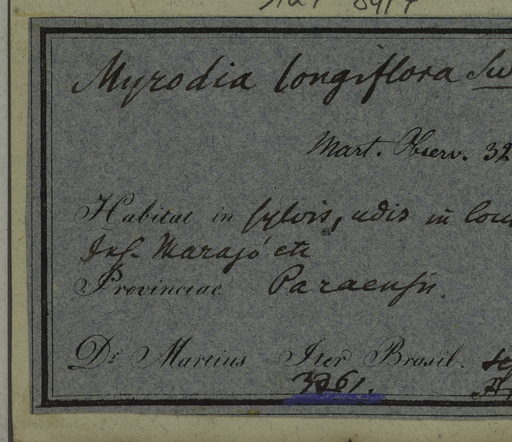 Myrodia longiflora Sw
Mart. Observ. 32
Habitat in sylvis, udis in
Ins. Marajó etc
Provinciae Paraensis.
Dr Martius Iter Brasil.
3261.